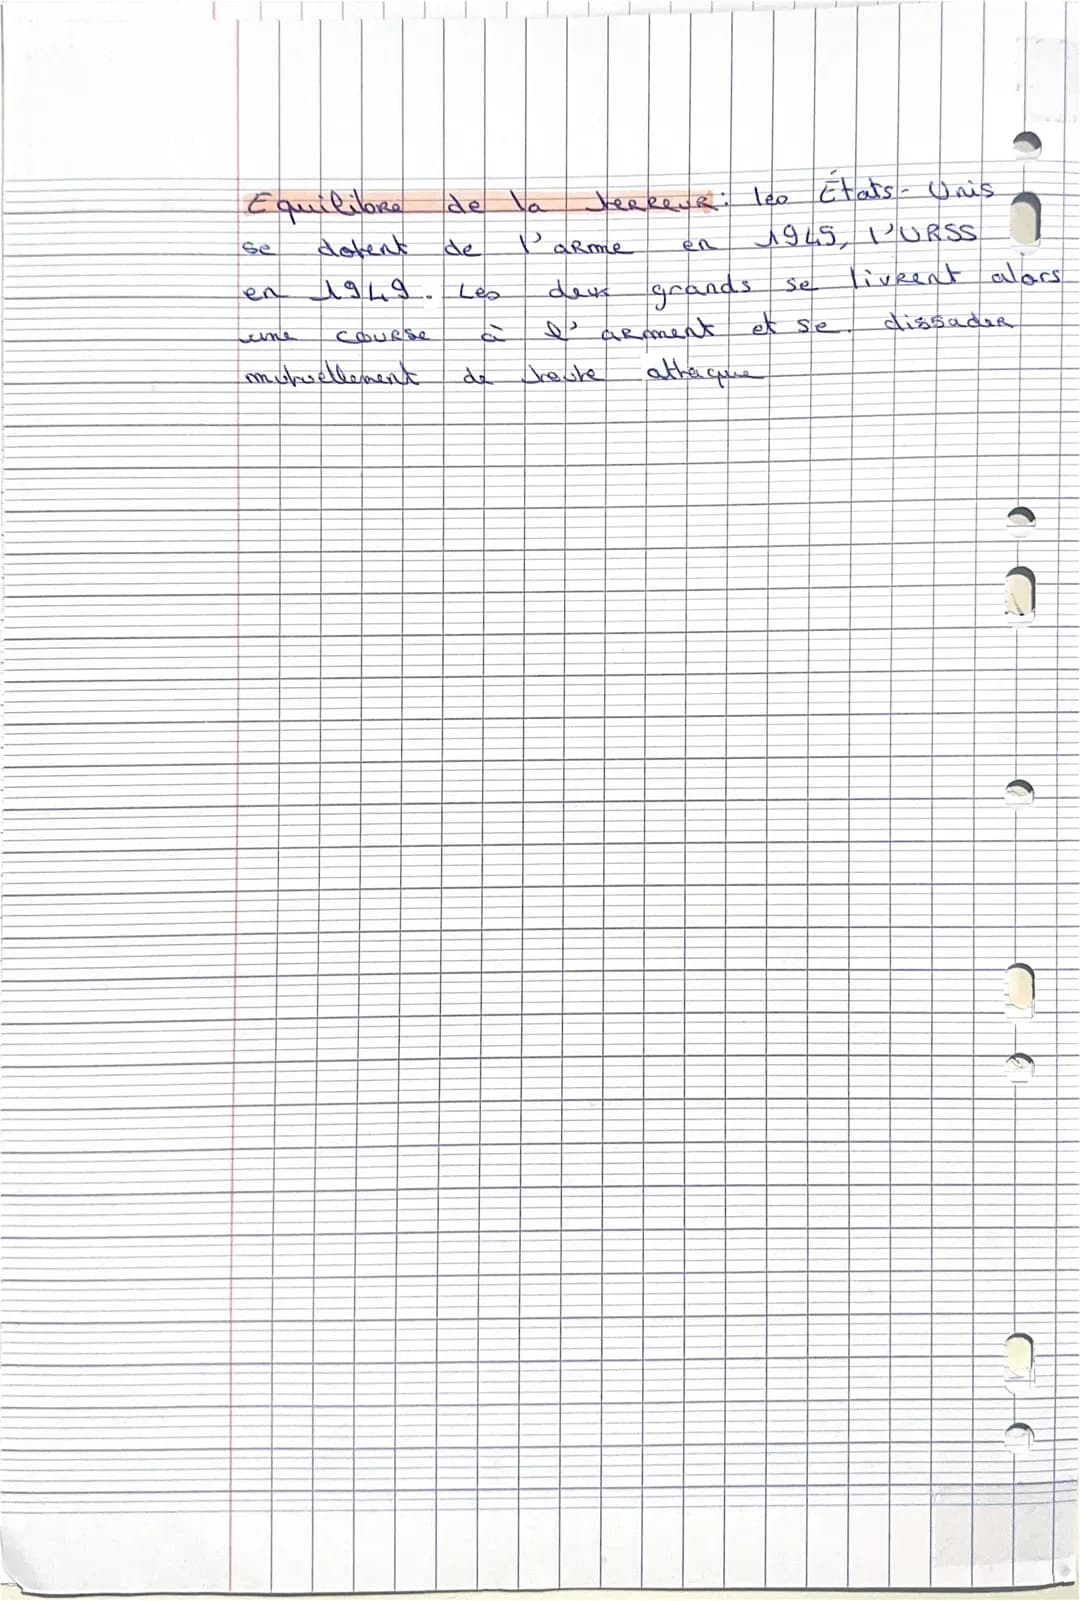 Equilibre de la terreur : les États-Unis
se dotent de l'arme en 1945, l'URSS
en 1949. Les deux grands se livrent alors
une course à l'arment et se dissader
mutuellement de toute attaque